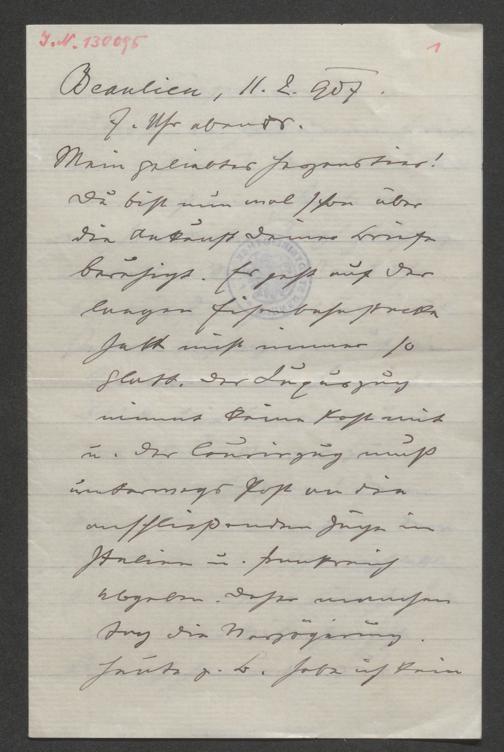 J.N. 130095
1
Beaulieu, 11. 2. 907.
7. Uhr abends.
Mein geliebtes
Du bist nun mal schon über
die Ankunft Deiner Briefe
beruhigt. Es geht auf der
langen Eisenbahnstrecke
halt nicht immer so
glatt. Der Luxuszug
nimmt keine Post mit
u. der Courirzug muß
unterwegs Post an die
anschließenden Züge in
Italien u. Frankreich
abgeben. Daher manchen
Tag die Verzögerung.
Heute z. B. habe ich kein